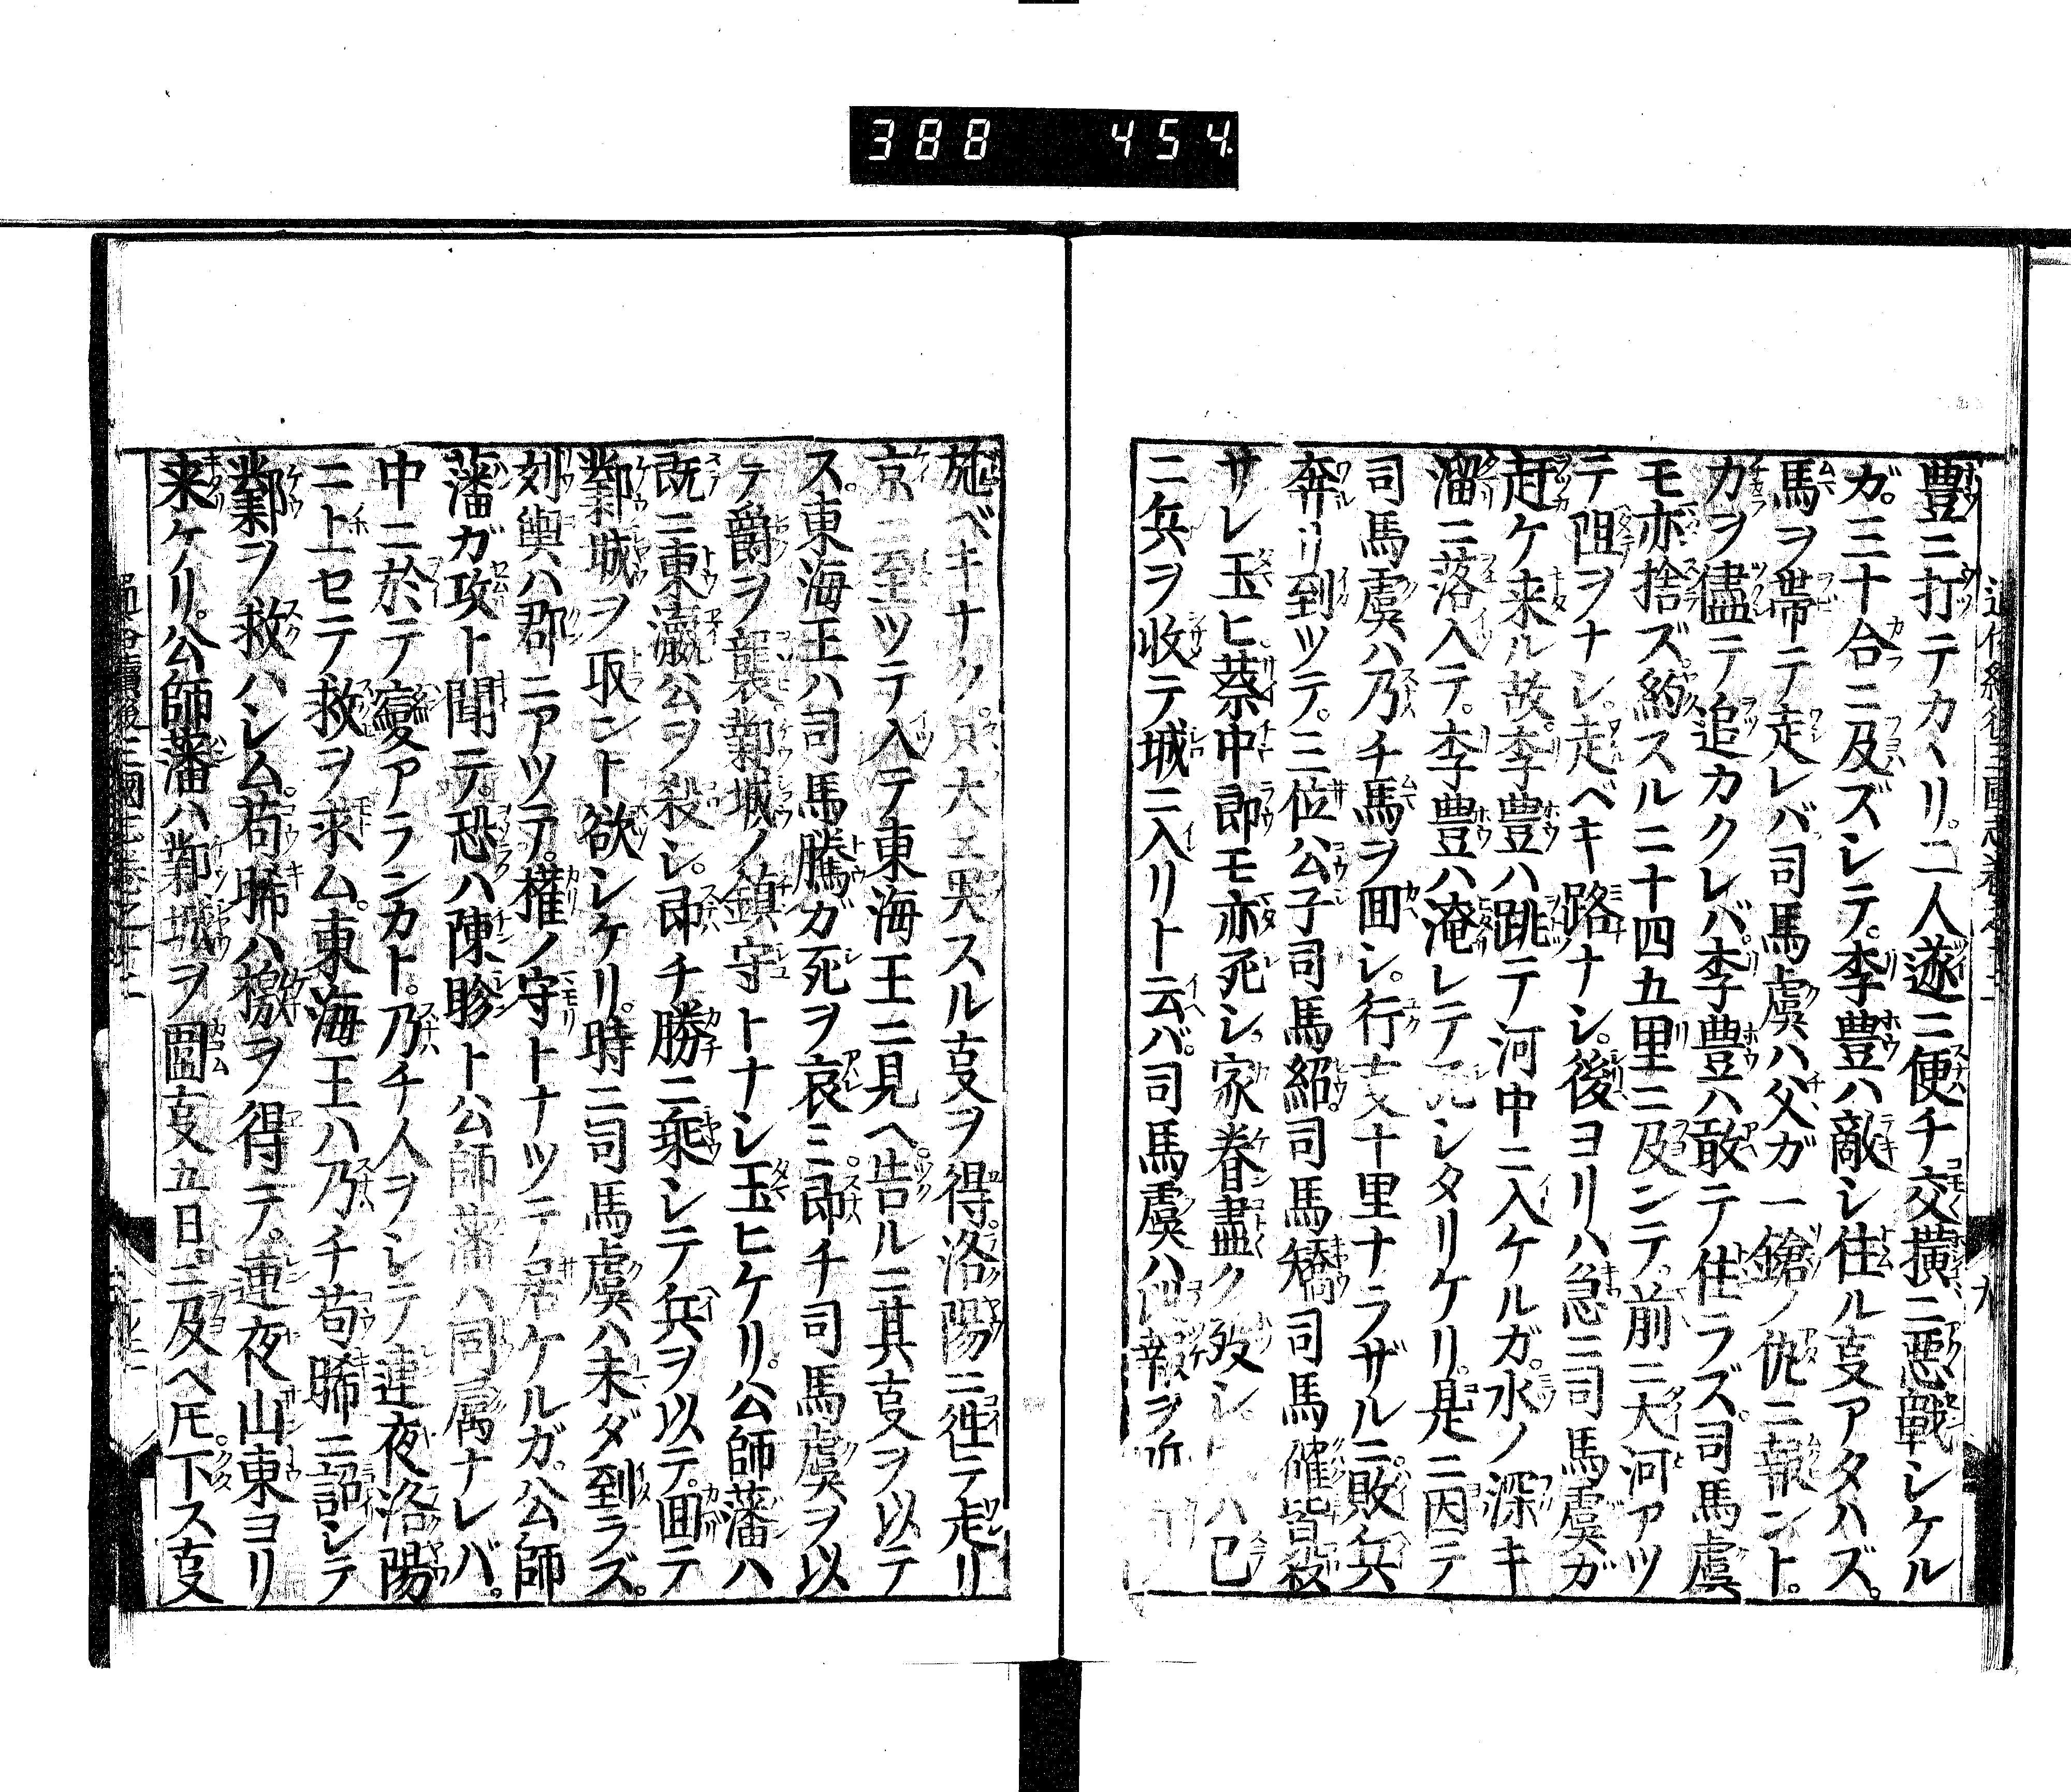 388 454
豊ニ打テカヽリ。二人遂ニ便チ交横ニ悪戰シケル
ガ。三十合ニ及ズシテ。李豊ハ敵シ住ル叓アタハズ。
馬ヲ帯テ走レバ司馬虞ハ父ガ一鎗ノ仇ニ報ント。
力ヲ儘テ追カクレバ。李豊ハ敢テ住ラズ。司馬虞
モ亦捨ズ。約スルニ十四五里ニ及ンテ。前ニ大河アツ
テ阻ヲナシ。走ベキ路ナシ。後ヨリハ急ニ司馬虞ガ
赶ケ来ル故。李豊ハ跳テ河中ニ入ケルガ。水ノ深キ
溜ニ落入テ。李豊ハ淹レテ死シタリケリ。是ニ因テ
司馬虞ハ乃チ馬ヲ囬シ。行叓十里ナラザルニ。敗兵
奔リ到ツテ。三位公子司馬紹。司馬矯司馬確皆殺
サレ玉ヒ。蔡中郎モ亦死シ。家眷盡ク歿シ。ハ已
ニ兵ヲ收テ城ニ入リト云バ。司馬虞ハ報ヲ
施ベキナク。只大ニ哭スル叓ヲ得。洛陽ニ徃テ走リ
京ニ至ツテ入テ東海王ニ見ヘ告ルニ其叓ヲ以テ
ス。東海王ハ司馬騰ガ死ヲ哀ミ。即チ司馬虞ヲ以
テ爵ヲ襲鄴城ノ鎮守トナシ玉ヒケリ。公師藩ハ
既ニ東瀛公ヲ殺シ。即チ勝ニ乘シテ兵ヲ以テ。囬テ
鄴城ヲ取ント欲シケリ。時ニ司馬虞ハ未ダ到ラズ。
刘輿ハ郡ニアツテ。權ノ守トナツテ居ケルガ。公師
藩ガ攻ト聞テ。恐ハ陳眕ト公師藩ハ同属ナレバ。
中ニ於テ變アランカト。乃チ人ヲシテ連夜洛陽
ニ上セテ救ヲ求ム。東海王ハ乃チ苟晞ニ詔シテ
鄴ヲ救ハシム。苟晞ハ檄ヲ得テ。連夜山東ヨリ
来ケリ。公師藩ハ鄴城ヲ圍叓五日。ニ及ヘ𪜈下ス叓